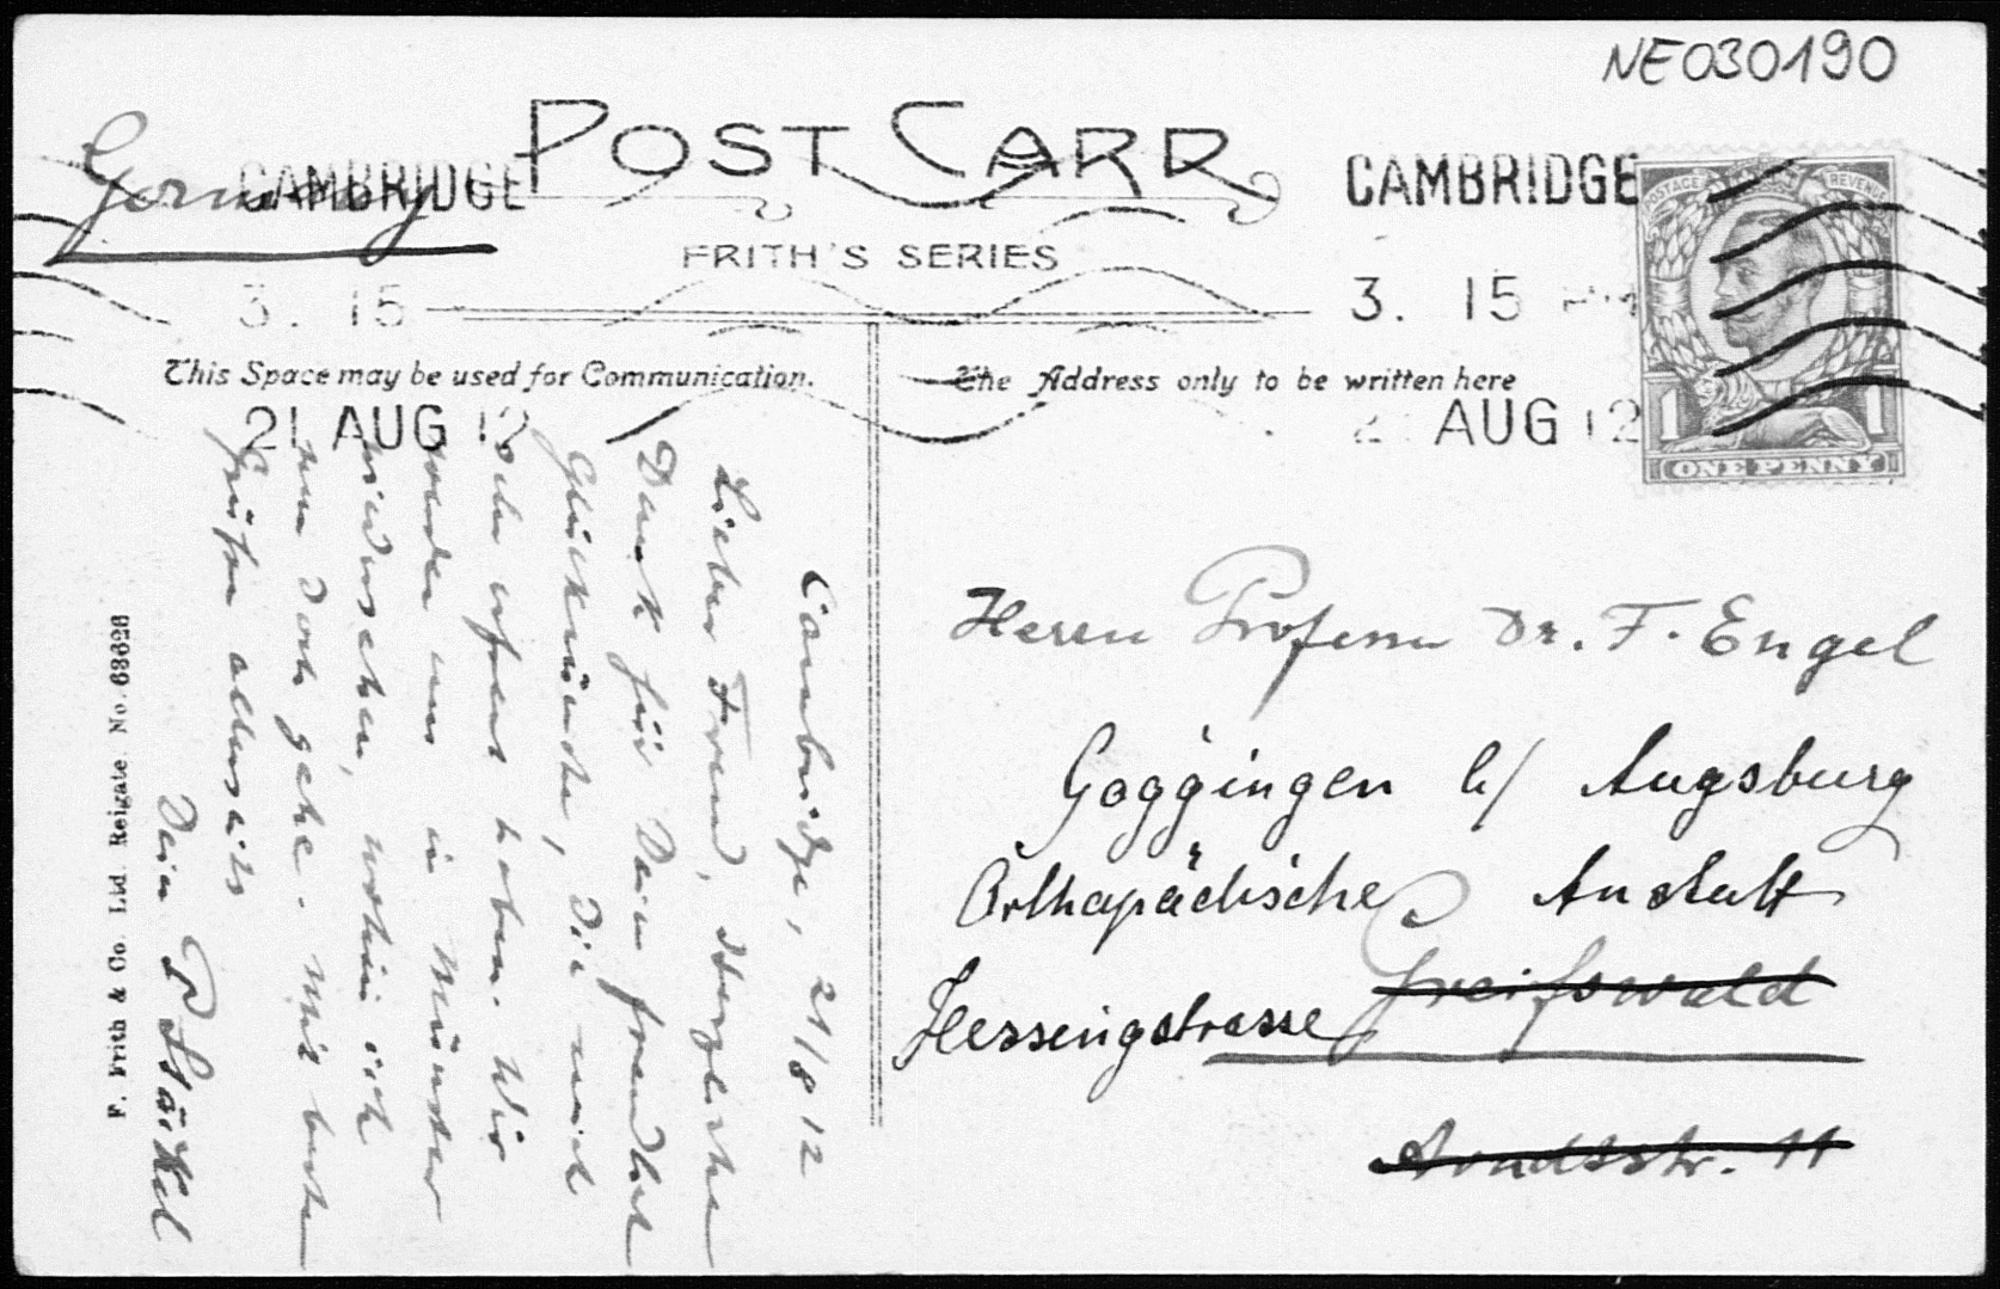 NE030190
Germany
POST CARD
CAMBRIDGE
CAMBRIDGE
FRITH'S SERIES
3. 15
3. 15 PM
This Space may be used for Communication.
The Address only to be written here
21 AUG 12
AUG 12
POSTAGE REVENUE
1 1
ONE PENNY
Cambridge, 21/8 12
Lieber Freund, Herzlichen
Dank für Dein freundlichst
Glückwünsche, die mich
sehr erfreut haben. Wir
werden uns in Münster
wiedersehen, wohin ich
nun doch gehe. Mit besten
Grüßen allerseits
Dein P Stäckel
F. Frith & Co. Ltd. Reigate. No. 63626
Herrn Professor Dr. F. Engel
Göggingen b/ Augsburg
Orthopädische Anstalt
Greifswald
Hessingstrasse
Arndtstr. 11